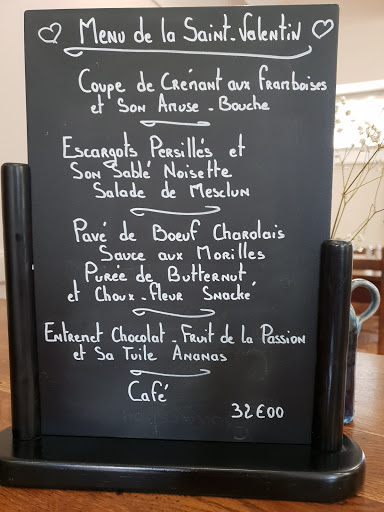 Menu de la Saint-Valentin
Coupe de Crémant aux Framboises
et Son Amuse-Bouche
Escargots Persillés et
Son Sablé Noisette
Salade de Mesclun
Pavé de Boeuf Charolais
Sauce aux Morilles
Purée de Butternut
et Choux-fleur Snacké
Entremet Chocolat-Fruit de la Passion
et Sa Tuile Ananas
Café
32€00